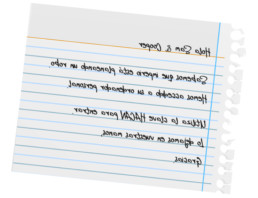 Hola Sam & Cooper
Sabemos que está planeando un robo.
Hemos accedido a su ordenador personal
Utiliza la clave para entrar
lo dejamos en vuestras manos.
Gracias.